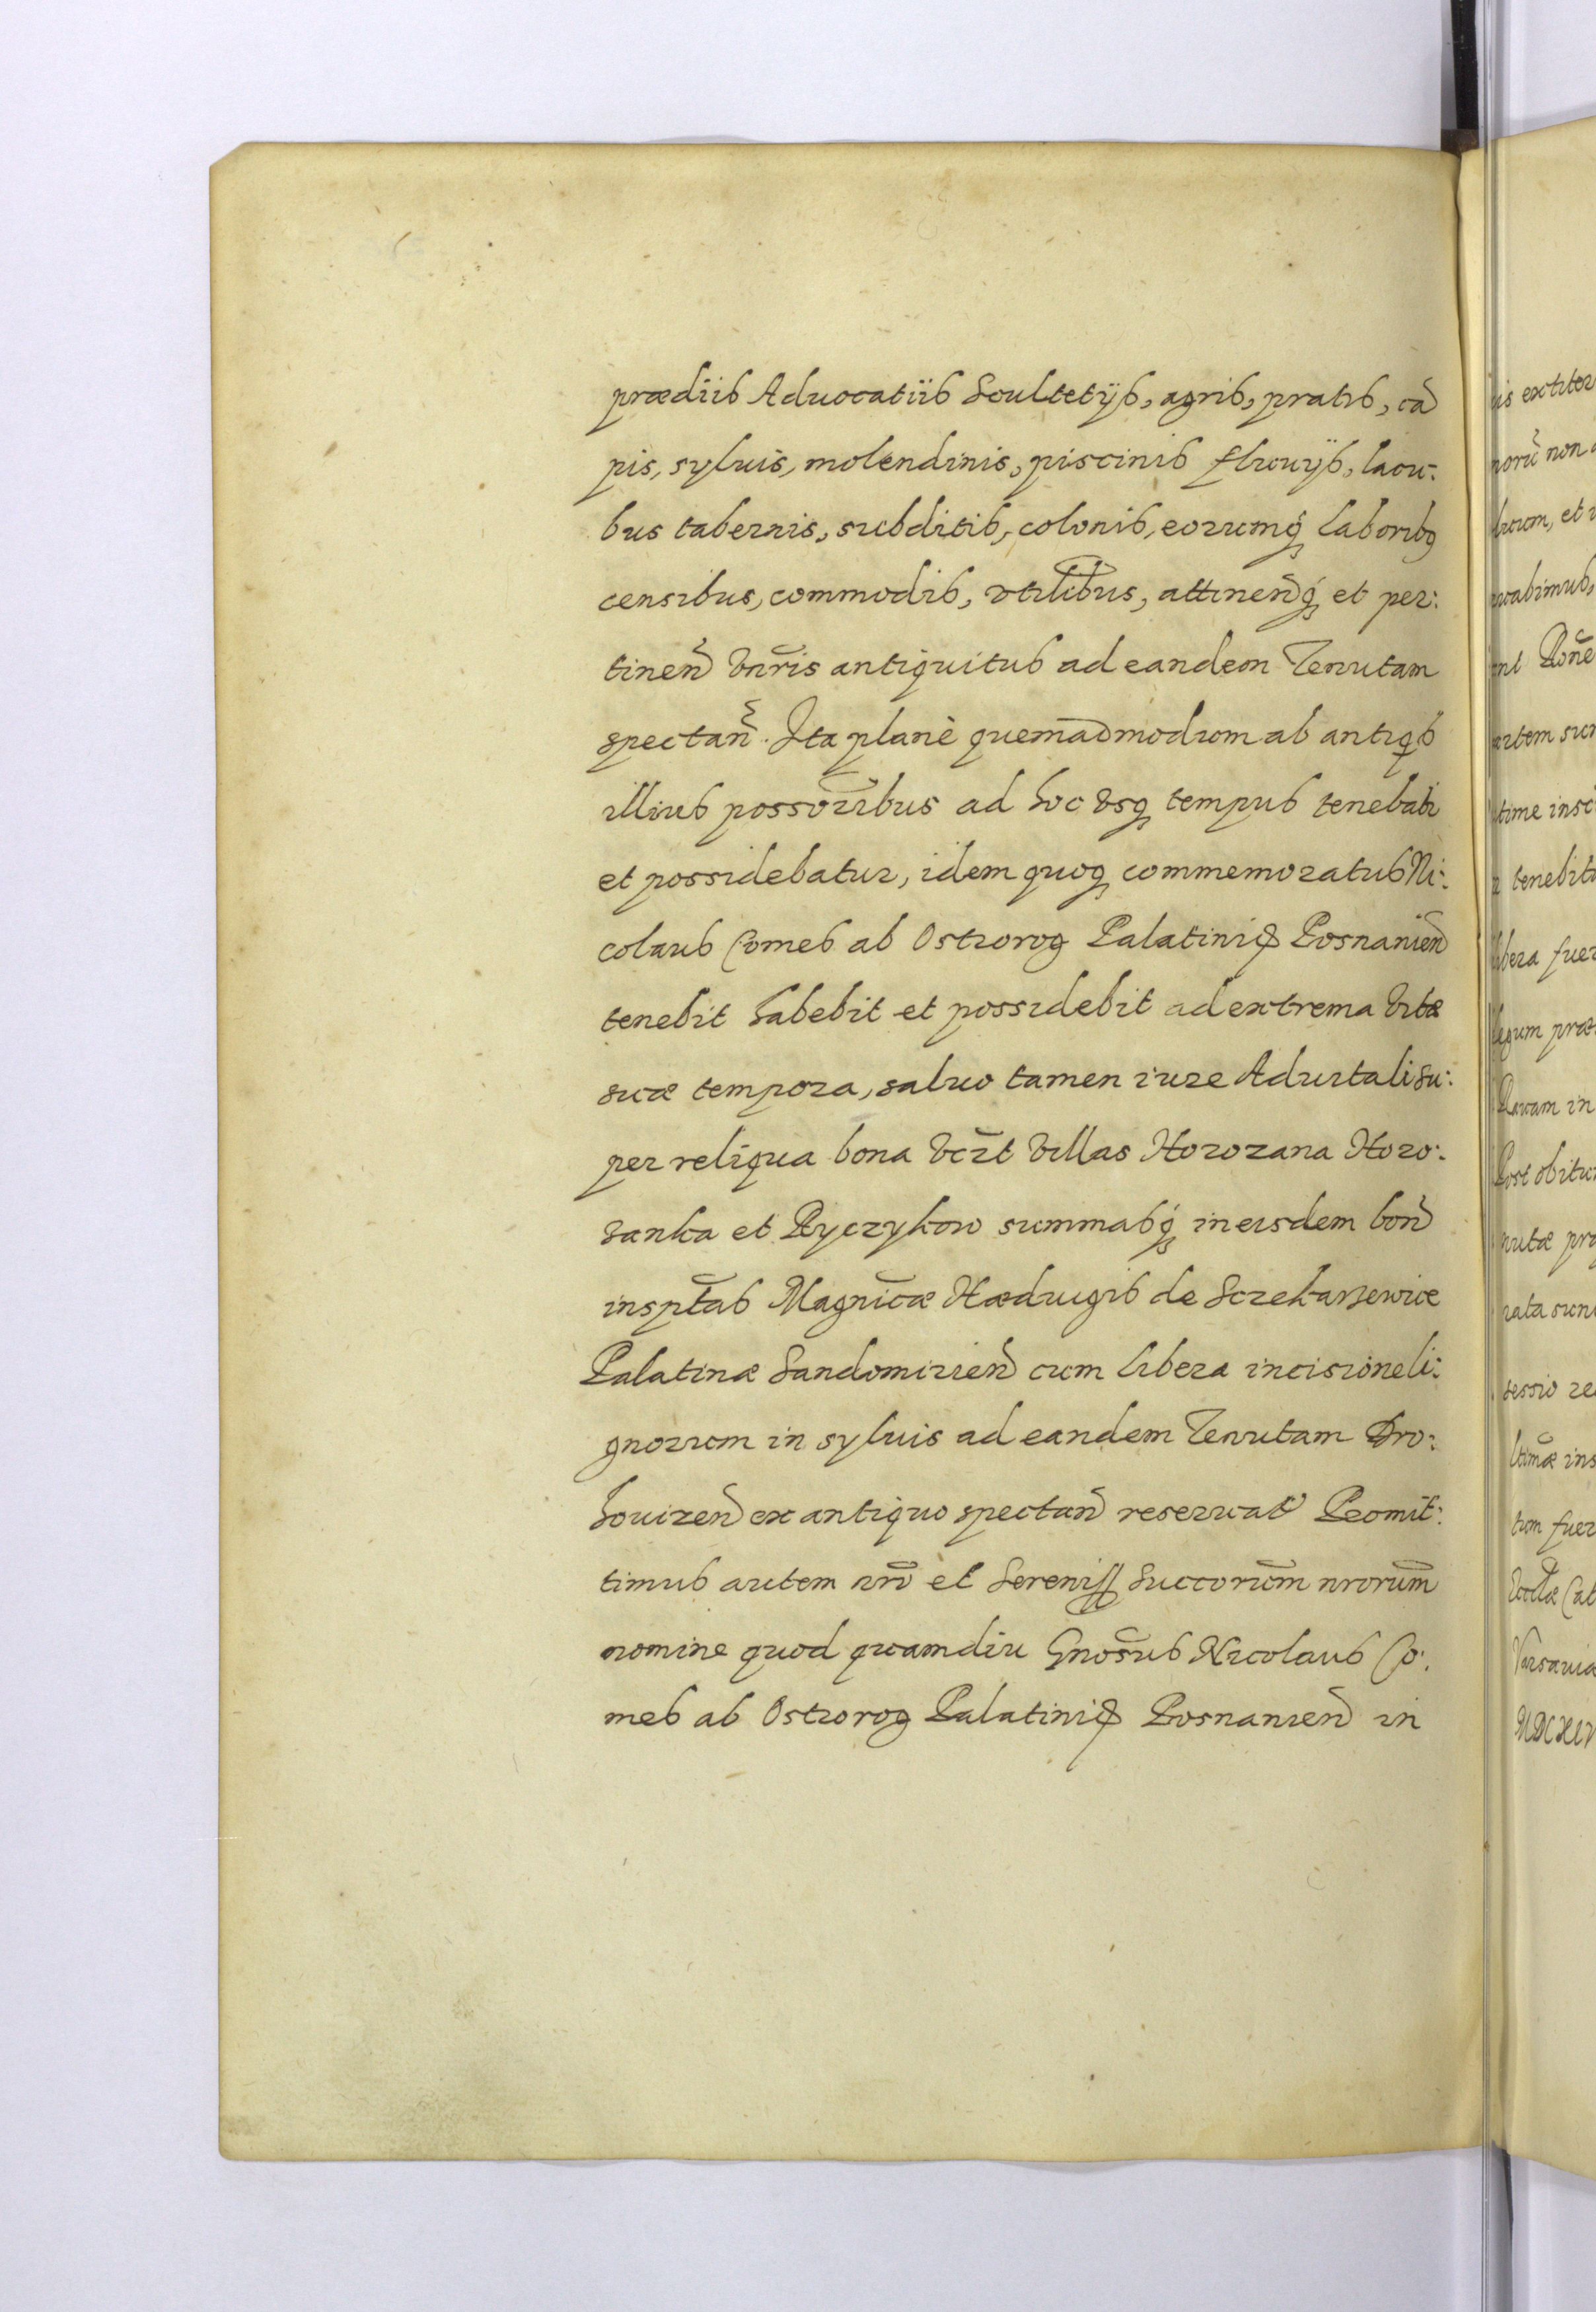 prædiis Aduocatiis Scultetijs, agris, pratis, cã
pis, syluis, molendinis, piscinis fluuijs, lacu:
bus tabernis, subditis, colonis, eorumq́ laboribq
censibus, commodis, vtilibus, attineñq́ et per:
tineñ vn̄ris antiquitus ad eandem Tenutam
spectañ. Ita planè quemadmodum ab antiqis
illius possōribus ad hoc vsq tempus tenebatr
et possidebatur, idem quoq commemoratus Ni:
colaus Comes ab Ostrorog Palatinus Posnanień
tenebit habebit et possidebit ad extrema vitæ
suæ tempora, saluo tamen iure Aduitali su:
per reliqua bona vc̃rt villas Horozana Horo:
zanka et Ryczykow summasq́ in eisdem boñ
insp̃tas Magnicæ Hædugis de Sczekarzewice
Palatinæ Sandomirień cum libera incisione li:
gnorum in syluis ad eandem Tenutam Dro:
houizeñ ex antiquo spectañ reseruata Promit:
timus autem nr̃o et Sereniss Succorũm nrorũm
nomine quod quamdiu Gnõsus Nicolaus Co:
mes ab Ostrorog Palatinus Posnanień in
is extiter
norũ non
et
rvabimus,
Rõne
artem sum
time insc
tenebit
bera fuer
legum præ
Rauam in
Post obitum
nutæ pro
rata sun
sessio re
ltimæ ins
tum fuer
Varsauia